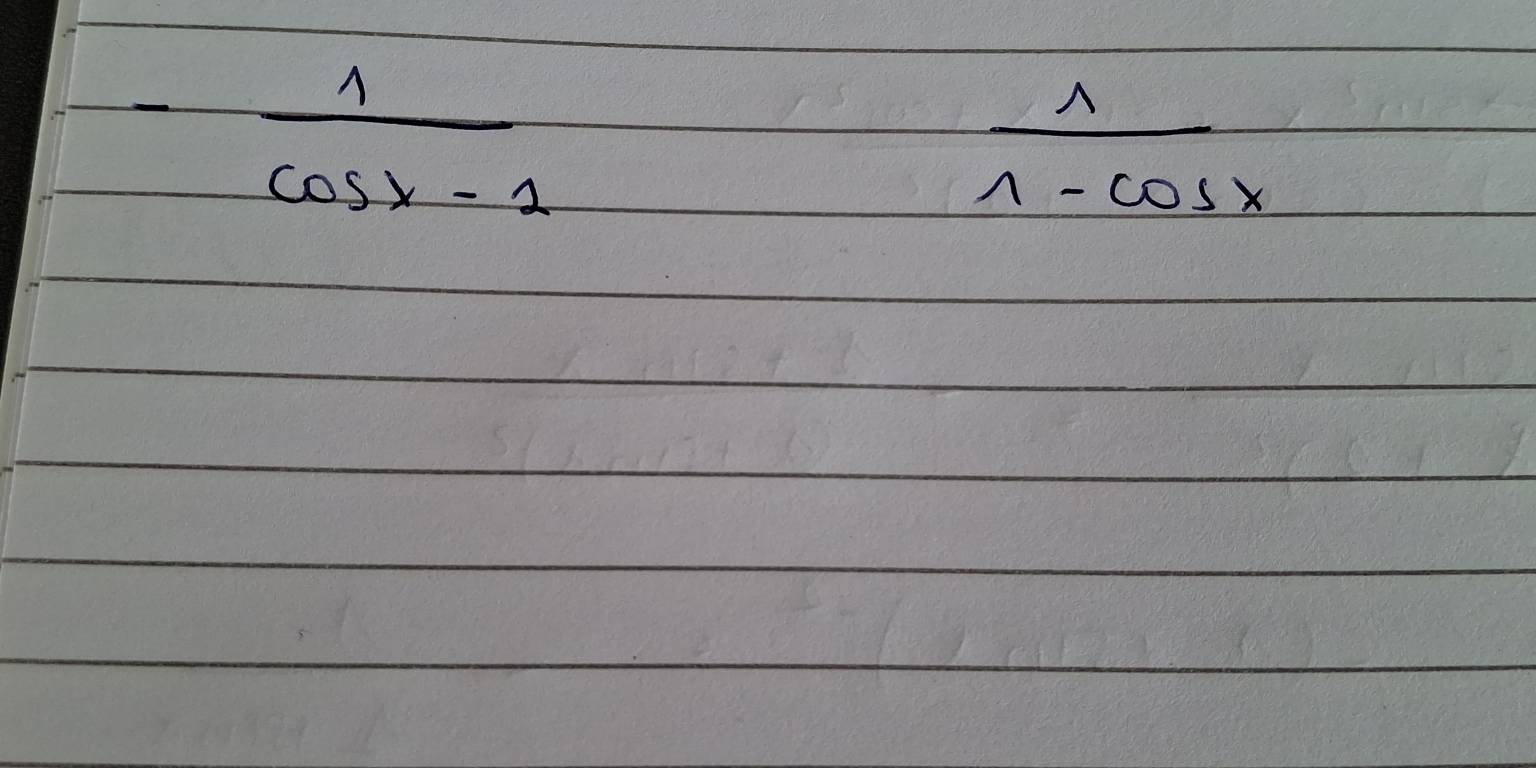 - 1/(cosx - 1) 1/(1 - cosx)